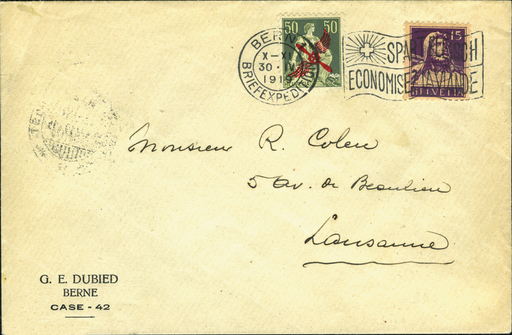 50 50
BERN
X-XI
30·IV
1919
BRIEFEXPEDITION
15
HELVETIA
ECONOMISEZ
Monsieur R. Colen
5 Av. de Beaulieu
Lausanne
G. E. DUBIED
BERNE
CASE - 42